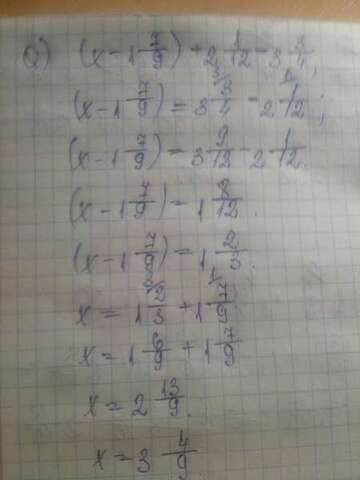 a) (x - 1 7/9) + 2 1/12 = 3 3/4;
(x - 1 7/9) = 3 3/4 - 2 1/12;
(x - 1 7/9) = 3 9/12 - 2 1/12.
(x - 1 7/9) = 1 8/12.
(x - 1 7/9) = 1 2/3.
x = 1 2/3 + 1 7/9.
x = 1 6/9 + 1 7/9
x = 2 13/9.
x = 3 4/9.